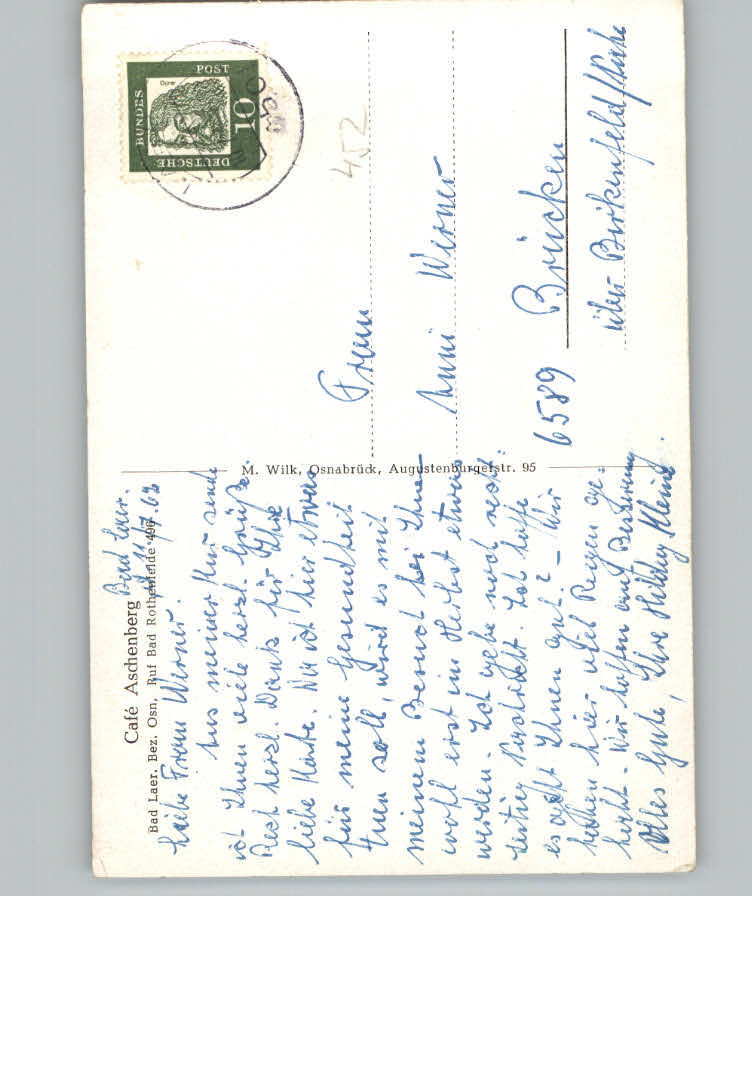 Café Aschenberg
Bad Laer, Bez. Osn. Ruf Bad Rothenfelde 496
Bad Laer.
7.62
Liebe Frau Werner.
Aus meiner Kur sende
ich Ihnen viele herzl. Grüße.
Recht herzl. Dank für Ihre
liebe Karte. Da ich hier etwas
für meine Gesundheit
tuen soll, wird es mit
meinem Besuch bei Ihnen
wohl erst im Herbst etwas
werden. Ich gebe noch recht-
zeitig Nachricht. Ich hoffe
es geht Ihnen gut? – Wir
hatten hier viel Regen ge-
habt. Wir hoffen auf Besserung
Alles Gute, Ihre Hildeg. Klein.
M. Wilk, Osnabrück, Augustenburgerstr. 95
DEUTSCHE
BUNDES
POST
10
Dürer
452
Frau
Anni Werner
6589 Brücken
über Birkenfeld/Nahe